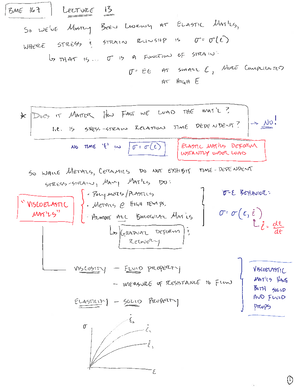 BME 283 LECTURE 13
SO WE'VE MAINLY BEEN LOOKING AT ELASTIC MAT'LS,
WHERE STRESS / STRAIN RLTNSHIP IS σ = σ(ε)
↳ THAT IS... σ IS A FUNCTION OF STRAIN.
σ = Eε AT SMALL ε, MORE COMPLICATED
AT HIGH ε
* DOES IT MATTER HOW FAST WE LOAD THE MAT'L?
I.E. IS STRESS-STRAIN RELATION TIME DEPENDENT? → NO!
NO TIME "t" IN σ = σ(ε)
ELASTIC MAT'LS DEFORM
INSTANTLY UNDER LOAD
SO WHILE METALS, CERAMICS DO NOT EXHIBIT TIME-DEPENDENT
STRESS-STRAIN, MANY MAT'LS DO:
"VISCOELASTIC
MAT'LS"
· POLYMERS/PLASTICS
· METALS @ HIGH TEMPS.
· ALMOST ALL BIOLOGICAL MAT'LS
↳ GRADUAL DEFORM &
RECOVERY
σ-ε BEHAVIOR:
σ = σ(ε, ε̇)
↳ ε̇ = dε/dt
VISCOSITY - FLUID PROPERTY
- MEASURE OF RESISTANCE TO FLOW
ELASTICITY - SOLID PROPERTY
VISCOELASTIC
MAT'LS HAVE
BOTH SOLID
AND FLUID
PROPS
σ
ε
1